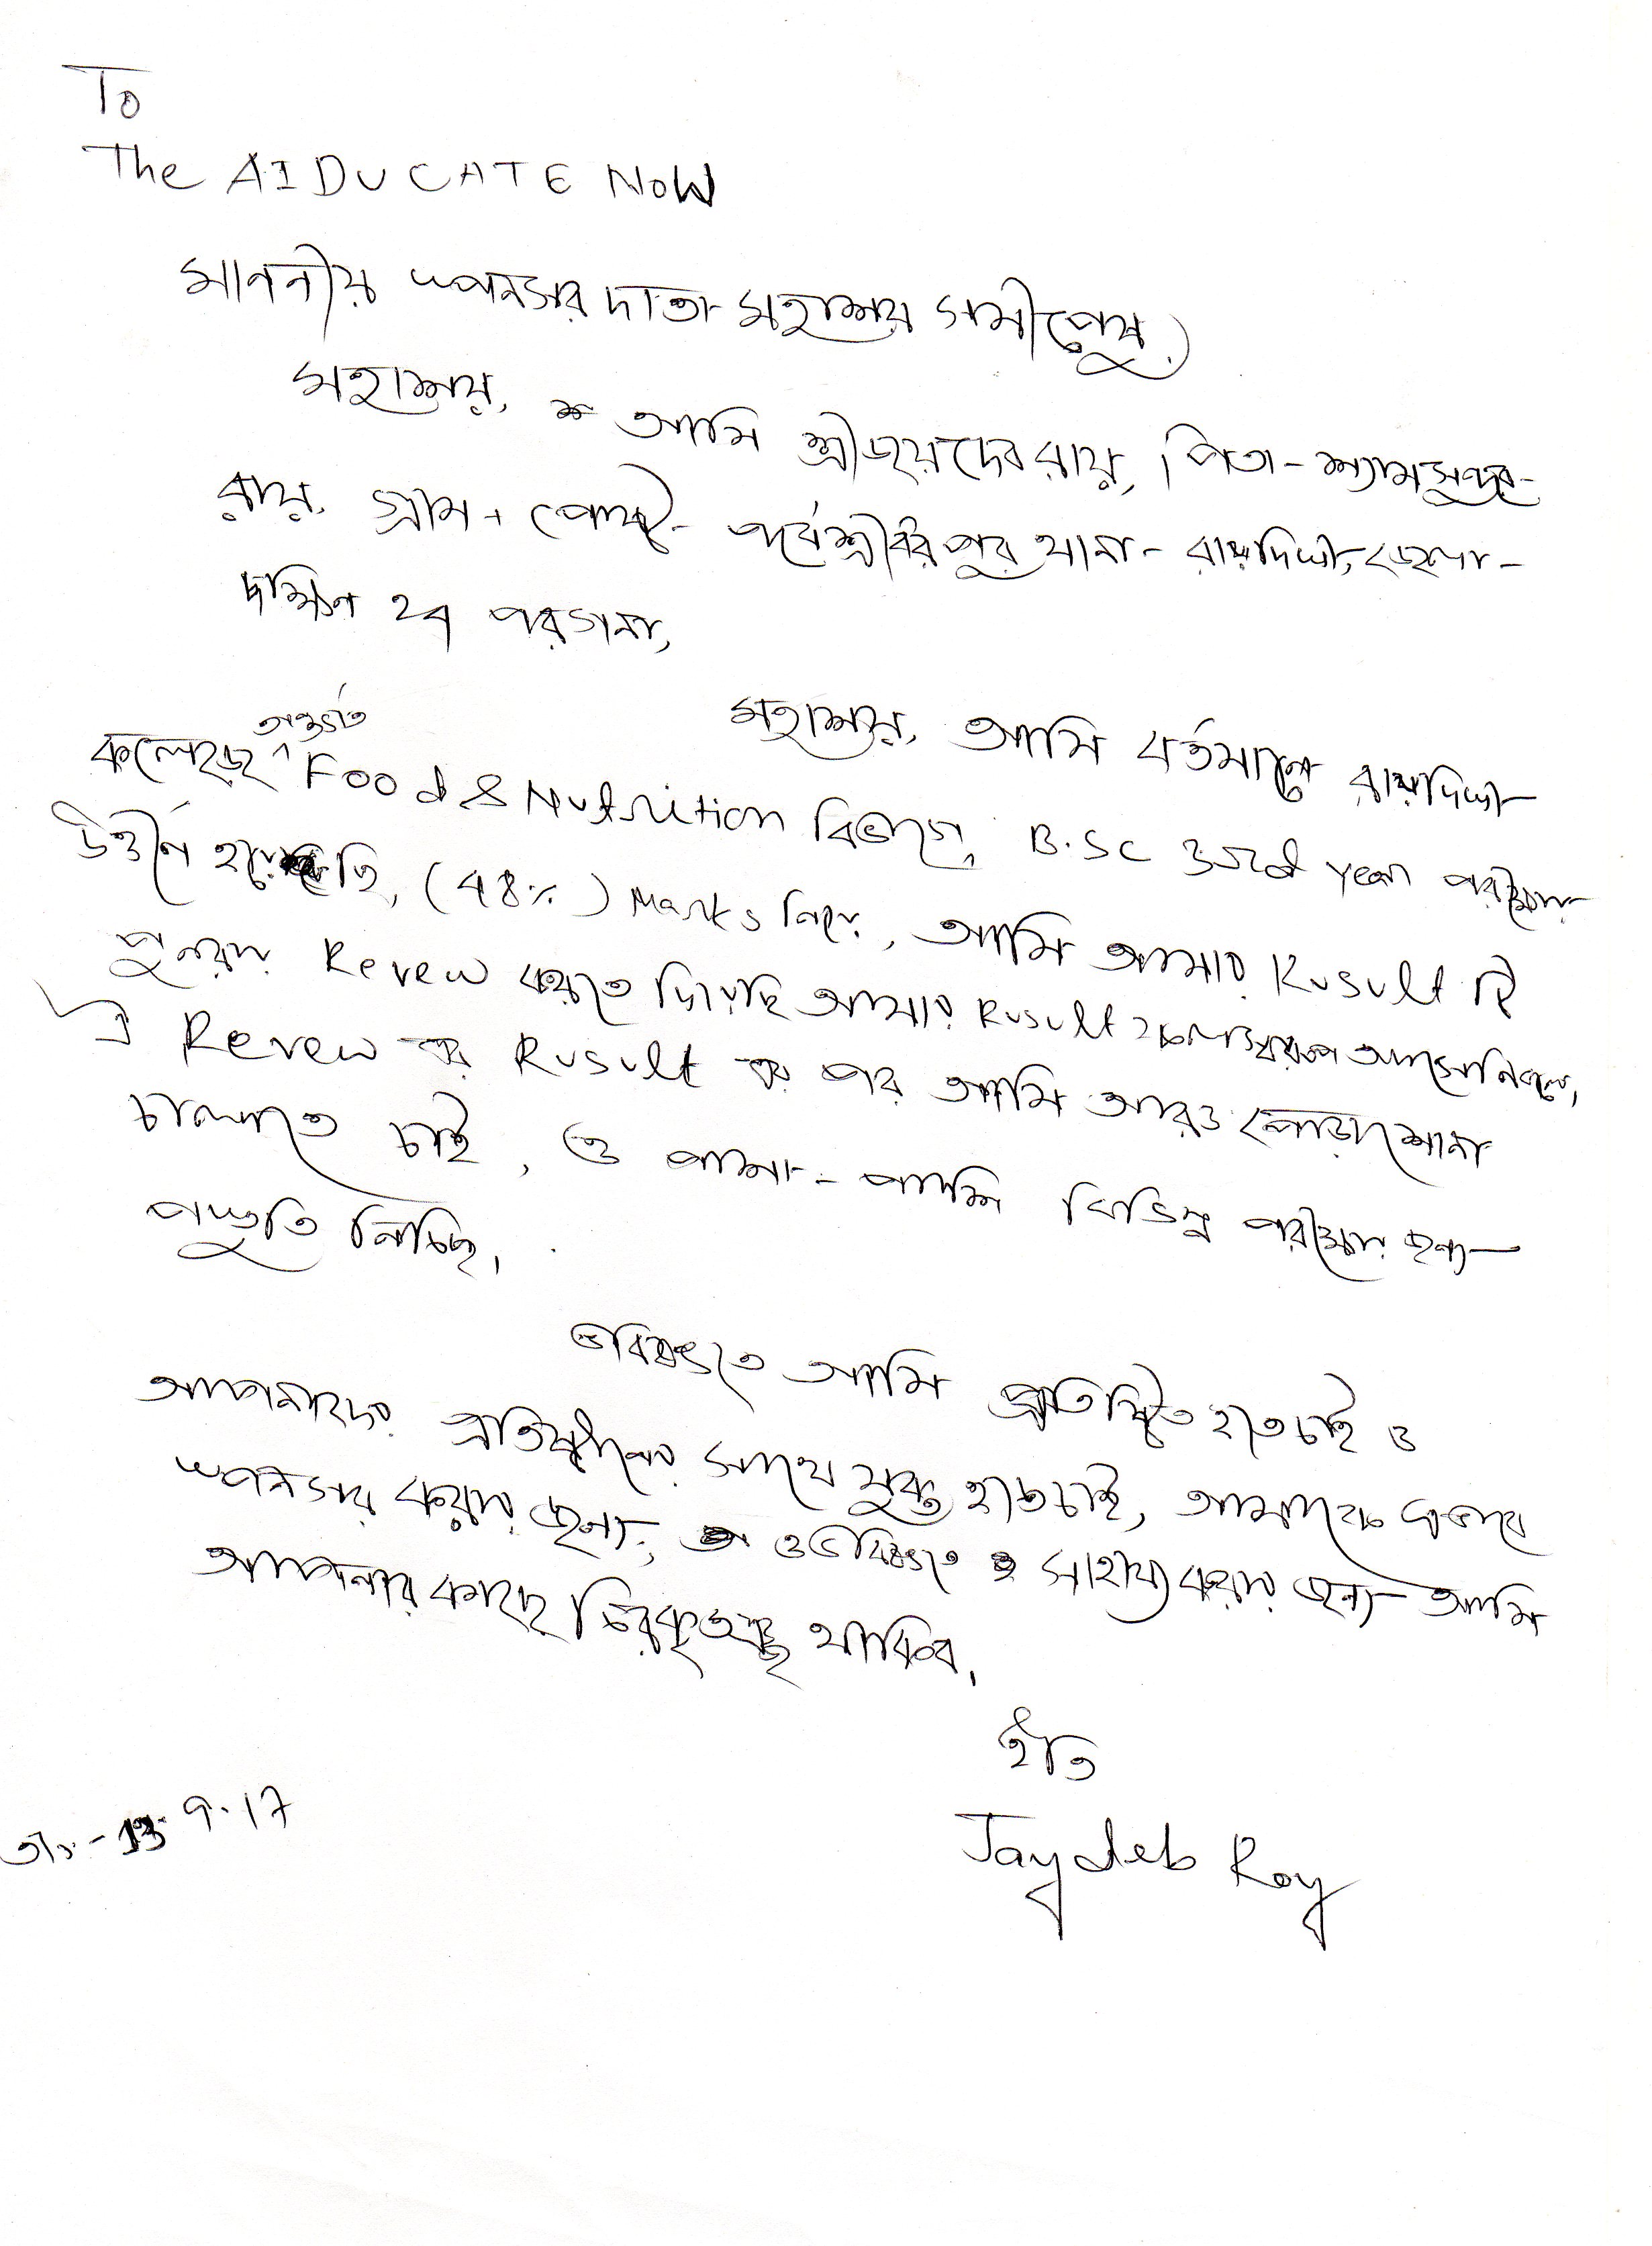 To
The AIDUCATE NOW
মাননীয় স্পনসর দাতা মহাশয় সমীপেষু
মহাশয়, আমি শ্রীজয়দেব রায়, পিতা - শ্যামসুন্দর
রায়, গ্রাম + পোষ্ট - থানা - রায়দিঘী, জেলা -
দক্ষিন ২৪ পরগনা,
মহাশয়, আমি বর্তমানে রায়দিঘী
কলেজে Food & Nutrition বিভাগে, B.Sc 3rd year পরীক্ষায়
উত্তীর্ন (48%) Marks নিয়ে, আমি আমার Rusult টি
পুনরায় Revew করতে দিয়েছি আমার Rusult
ঐ Revew এর Rusult এর পর আমি আরও পোড়াশোনা
চালাতে চাই, ও পাশা-পাশি বিভিন্ন পরীক্ষার জন্য
নিচ্ছি।
ভবিষ্যতে আমি প্রতিষ্ঠিত হতে চাই ও
আপনাদের প্রতিষ্ঠানের সাথে যুক্ত হতে চাই, আমাকে এভাবে
স্পনসর করার জন্য, ও ভবিষ্যতে সাহায্য করার জন্য আমি
আপনার কাছে চিরকৃতজ্ঞ থাকিব।
ইতি
তাং - 13.9.17
Jaydeb Roy